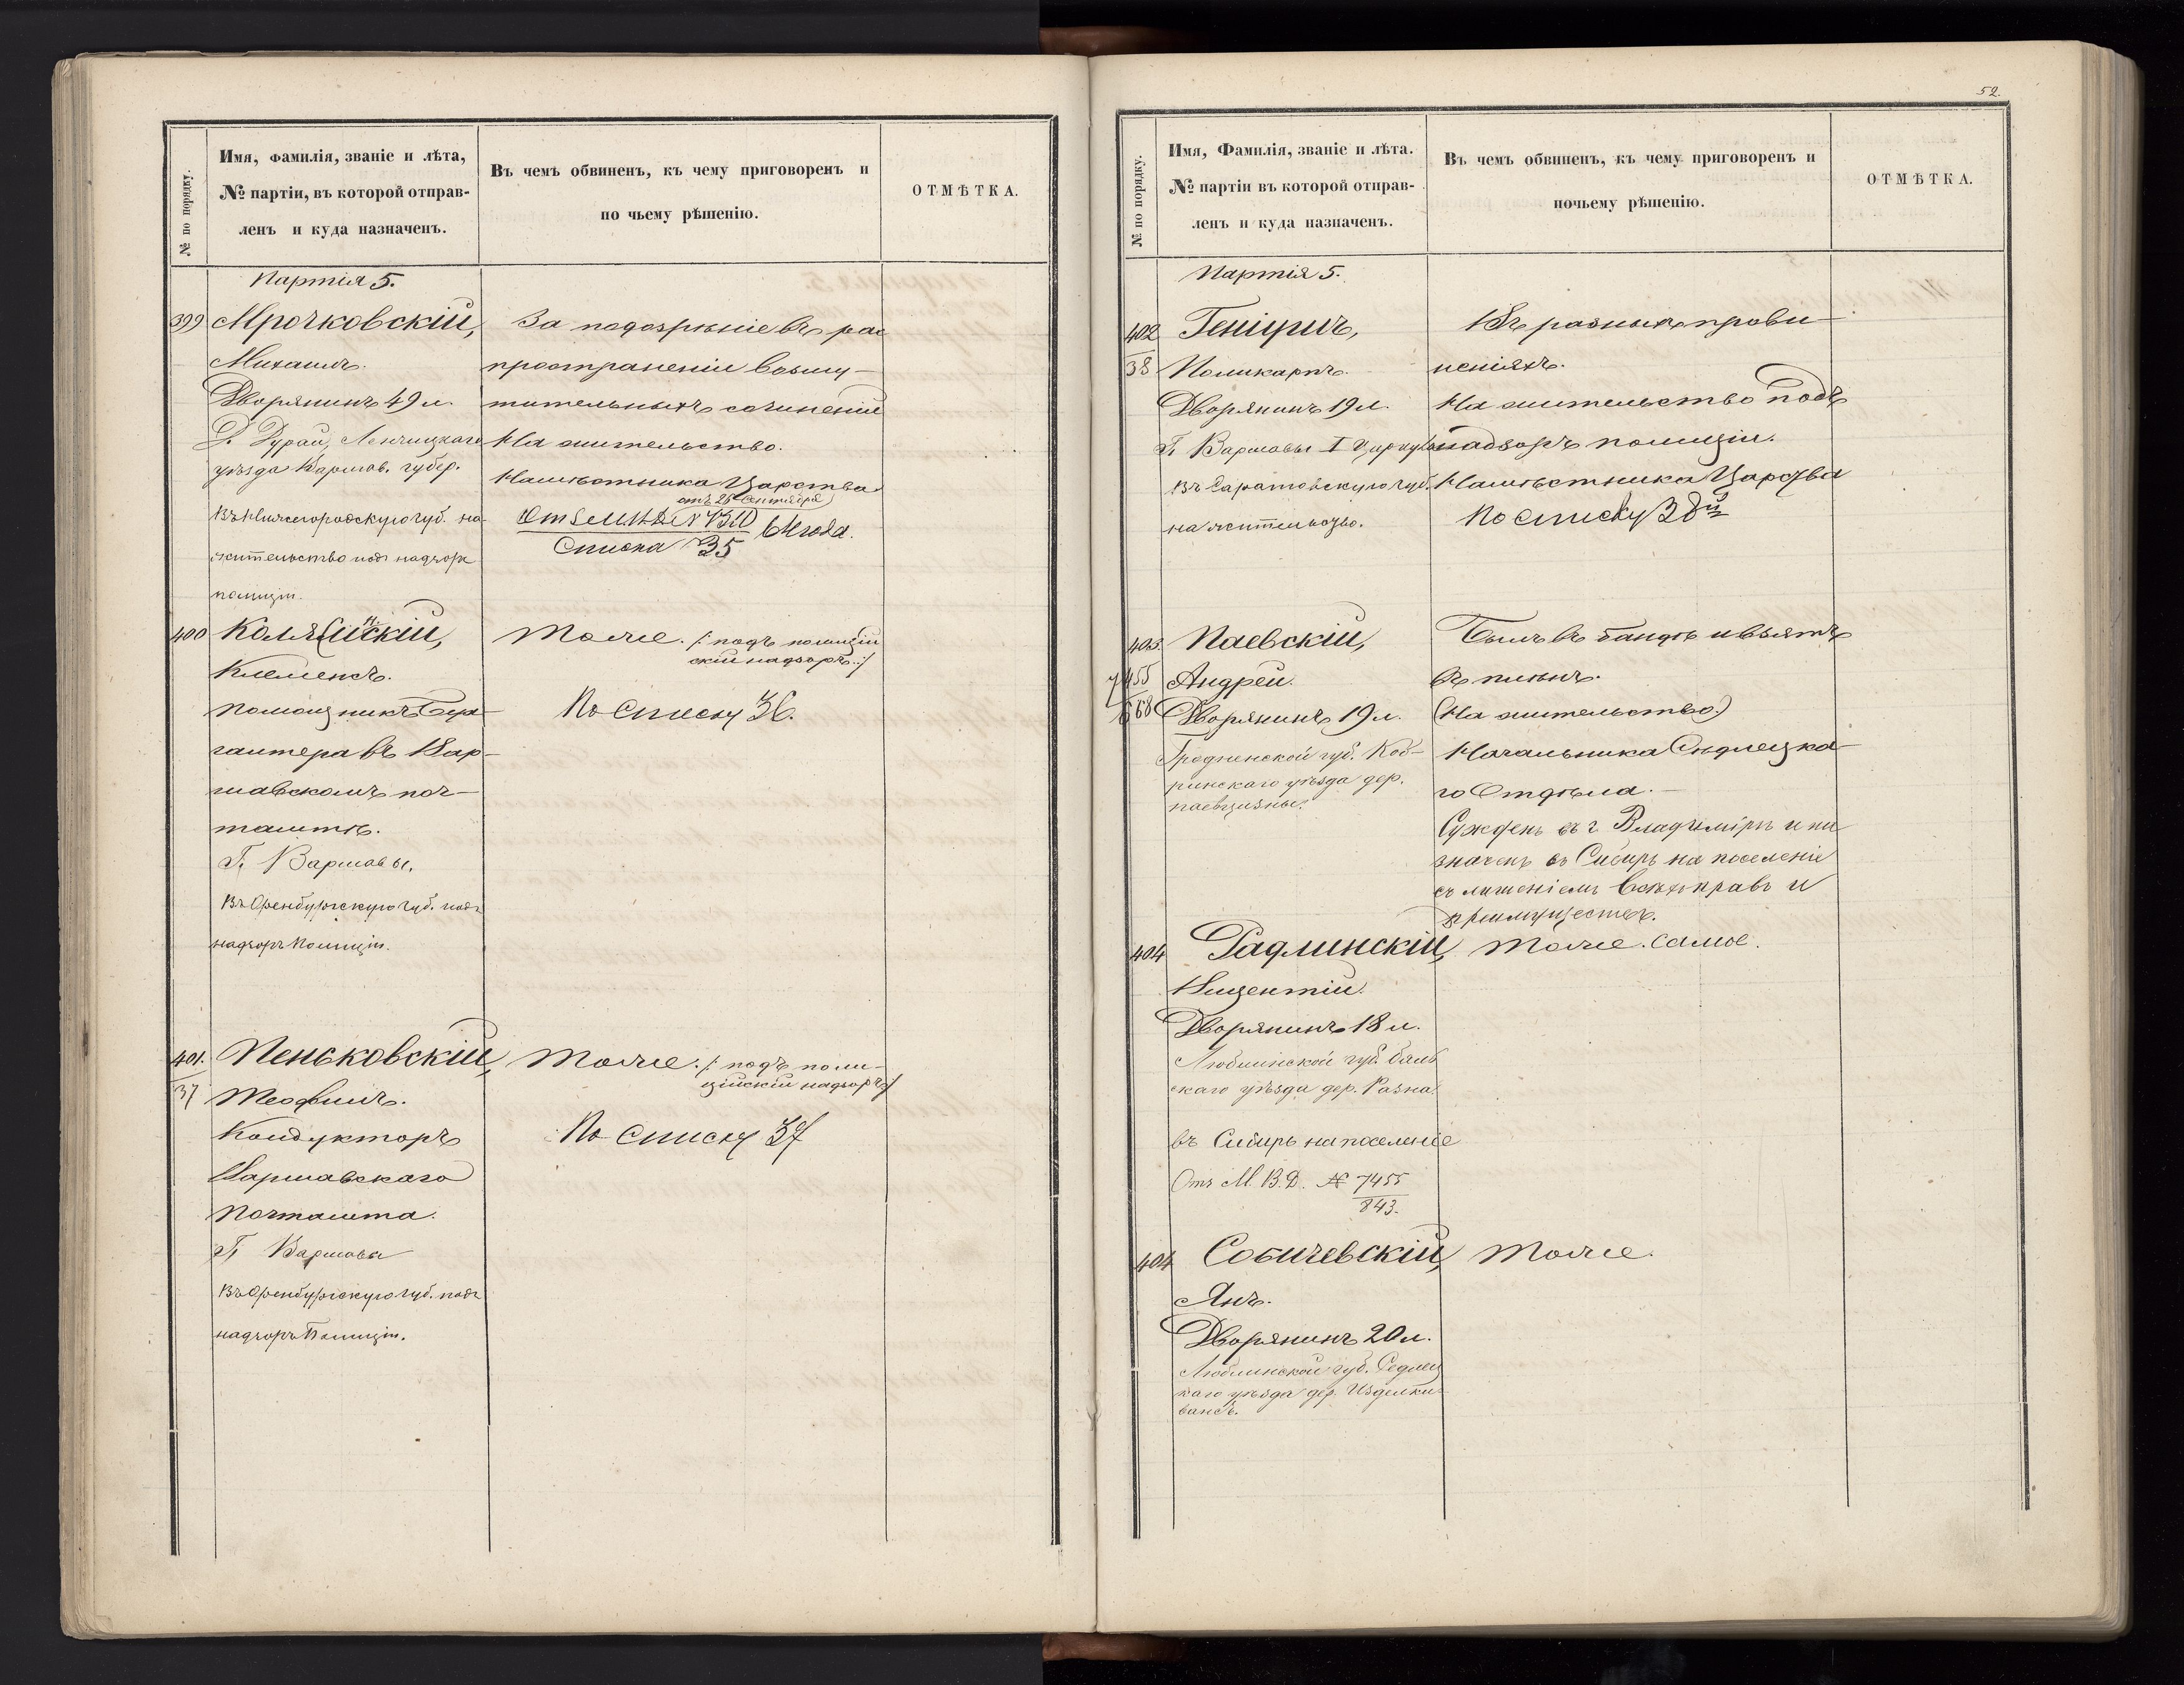 № по порядку.
Имя, фамилія, званіе и лѣта,
№ партіи, въ которой отправ-
ленъ и куда назначенъ.
Въ чемъ обвиненъ, къ чему приговоренъ и
по чьему рѣшенію.
ОТМѢТКА.
Партія 5.
399
Мрочковскій,
Михаилъ.
Дворянинъ 49 л.
Д. Дураи, Ленчицкаго
уѣзда Варшав. губер.
Въ Нижегородскую губ. на
жительство подъ надзоръ
полиціи.
За подозрѣніе въ рас
пространеніи возму-
тительныхъ сочиненій
На жительство.
Намѣстника Царства
отъ 26 Сентября
64 года.
Списка 35
400
Клеменсъ.
Помощникъ Бух
галтера въ Вар-
шавскомъ поч-
тамтѣ.
Г. Варшавы.
Въ Оренбургскую губ. подъ
надзоръ Полиціи.
Тоже. /: подъ полицій
скій надзоръ :/
По Списку 36.
401.
37
Пеньковскій,
Теофилъ.
Кондукторъ
Варшавскаго
Почтамта.
Г. Варшавы
Въ Оренбургскую губ. подъ
надзоръ Полиціи.
Тоже. /: подъ поли-
ційскій надзоръ :/
По списку 37
52.
№ по порядку.
Имя, Фамилія, званіе и лѣта.
№ партіи въ которой отправ-
ленъ и куда назначенъ.
Въ чемъ обвиненъ, къ чему приговоренъ и
почьему рѣшенію.
ОТМѢТКА.
Партія 5.
402
38
Поликарпъ.
Дворянинъ 19 л.
Г. Варшавы I Циркула
Въ Саратовскую губ.
на жительство.
Въ разныхъ прови-
неніяхъ.
На жительство подъ
надзоръ полиціи.
Намѣстника Царства
По списку 38й
403.
7455
668
Паевскій,
Андрей.
Дворянинъ 19 л.
Гродненской губ. Коб-
ринскаго уѣзда дер.
Былъ въ бандѣ и взятъ
въ плѣнъ.
(На жительство.)
Начальника Сѣдлецка-
го Отдѣла.
Сужденъ въ г Владимірѣ и на
значенъ въ Сибирь на поселеніе
съ лишеніемъ всѣхъ правъ и
преимуществъ.
404
Радлинскій,
Вицентій.
Дворянинъ 18 л.
Люблинской губ. Бяль
скаго уѣзда дер. Разна.
въ Сибирь на поселеніе
Отъ М. В. Д. № 7455
843.
Тоже. самое.
404
Собичевскій,
Янъ.
Дворянинъ 20 л.
Люблинской губ. Седлец
каго уѣзда дер.
Тоже.